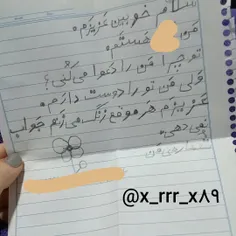 سلام خوبین عزیزم.
من هستم.
تو چرا من را دعوا می کنی؟
ولی من تو را دوست دارم.
عزیزم هر موقع زنگ می زنم جواب
نمی دهی.
@x_rrr_x۸۹